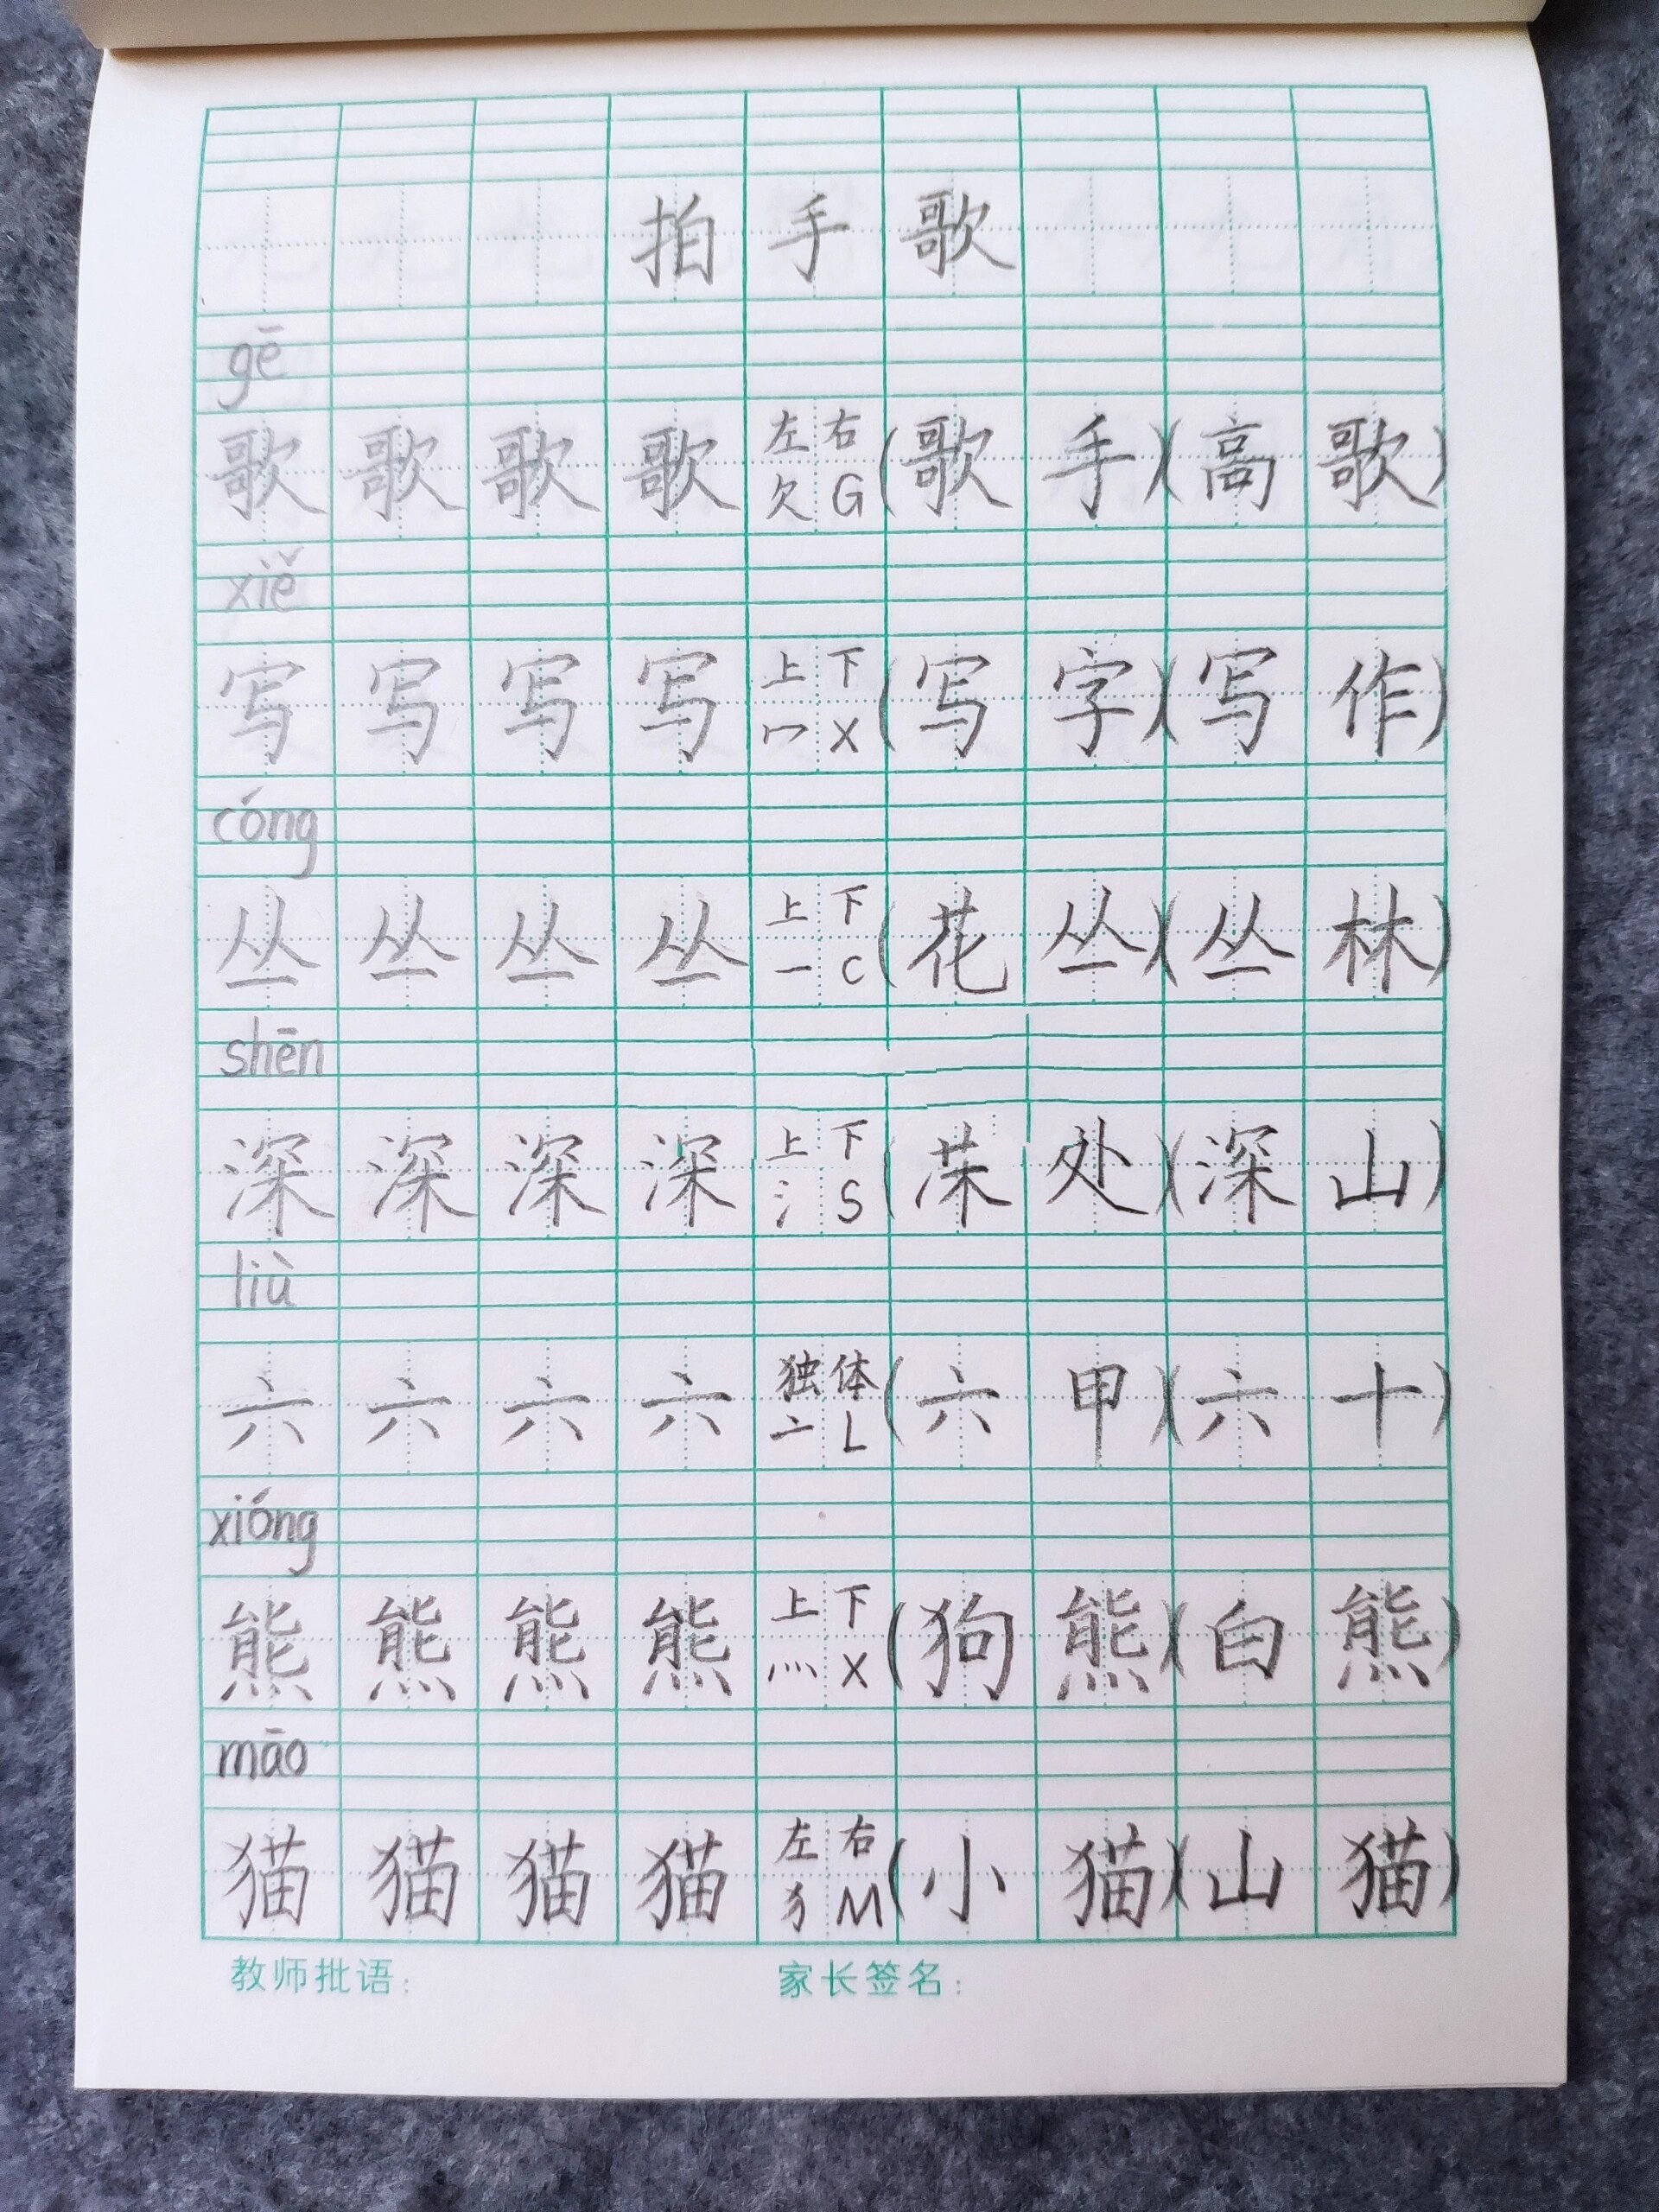 拍手歌
gē
歌 歌 歌 歌 左右 欠 G (歌手)(高歌)
xiě
写 写 写 写 上下 冖 X (写字)(写作)
cóng
丛 丛 丛 丛 上下 一 C (花丛)(丛林)
shēn
深 深 深 深 上下 氵 S (处)(深山)
liù
六 六 六 六 独体 亠 L (六甲)(六十)
xióng
熊 熊 熊 熊 上下 灬 X (狗熊)(白熊)
māo
猫 猫 猫 猫 左右 犭 M (小猫)(山猫)
教师批语: 家长签名: